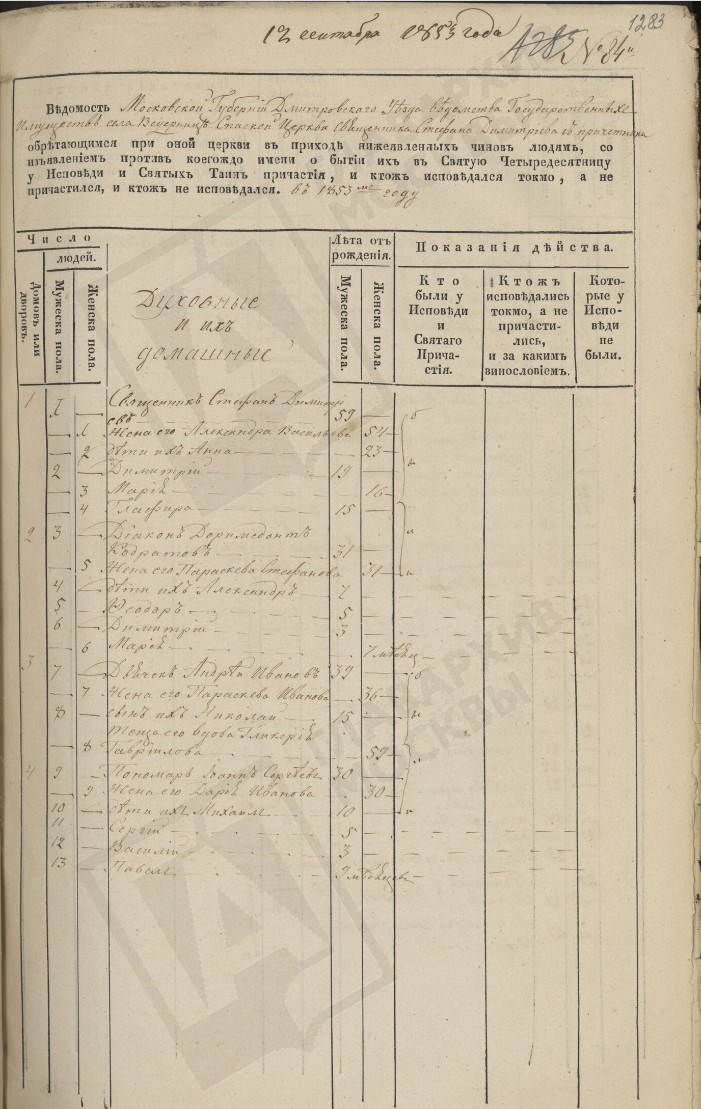 12 сентября 1853 года
1283
№ 84
Вѣдомость Московской Губерніи Дмитровскаго Уѣзда вѣдомства Государственныхъ
Имуществъ села Ведерницъ Спаской Церкви священника Стефана Димитріева съ причетники
обрѣтающимся при оной церкви въ приходѣ нижеявленныхъ чиновъ людямъ, со
изъявленіемъ противъ коегождо имени о бытіи ихъ въ Святую Четыредесятницу
у Исповѣди и Святыхъ Таинъ причастія, и ктожъ исповѣдался токмо, а не
причастился, и ктожъ не исповѣдался. въ 1853 мъ году
Число
людей.
Домовъ или дворовъ.
Мужеска пола.
Женска пола.
Духовные
и ихъ
домашные
Лѣта отъ
рожденія.
Мужеска пола.
Женска пола.
Показанія дѣйства.
Кто
были у
Исповѣди
и
Святаго
Прича-
стія.
Ктожъ
исповѣдались
токмо, а не
причасти-
лись,
и за какимъ
винословіемъ.
Кото-
рые у
Испо-
вѣди
не
были.
1 1 Священникъ Стефанъ Димитрі
евъ 59
1 Жена его Александра Васильева 54
2 дѣти ихъ Анна 23
2 Димитрій 19
3 Марія 16
4 Глафира 15
2 3 Діаконъ Доримедонтъ
Кодратовъ 31
5 Жена его Параскева Стефанова 31
4 дѣти ихъ Александръ 7
5 Ѳеодоръ 5
6 Димитрій 3
6 Марія 7 мѣсяц
3 7 Дьячекъ Андрей Ивановъ 39
7 Жена его Параскева Иванова 36
8 сынъ ихъ Николай 15
Теща его вдова Гликерія
8 Гавріилова 59
4 9 Пономарь Іоаннъ Сергѣевъ 30
9 Жена его Дарья Иванова 30
10 дѣти ихъ Михаилъ 10
11 Сергій 5
12 Василій 3
13 Павелъ 9 мѣсяцевъ
ГЛАВАРХИВ
МОСКВЫ